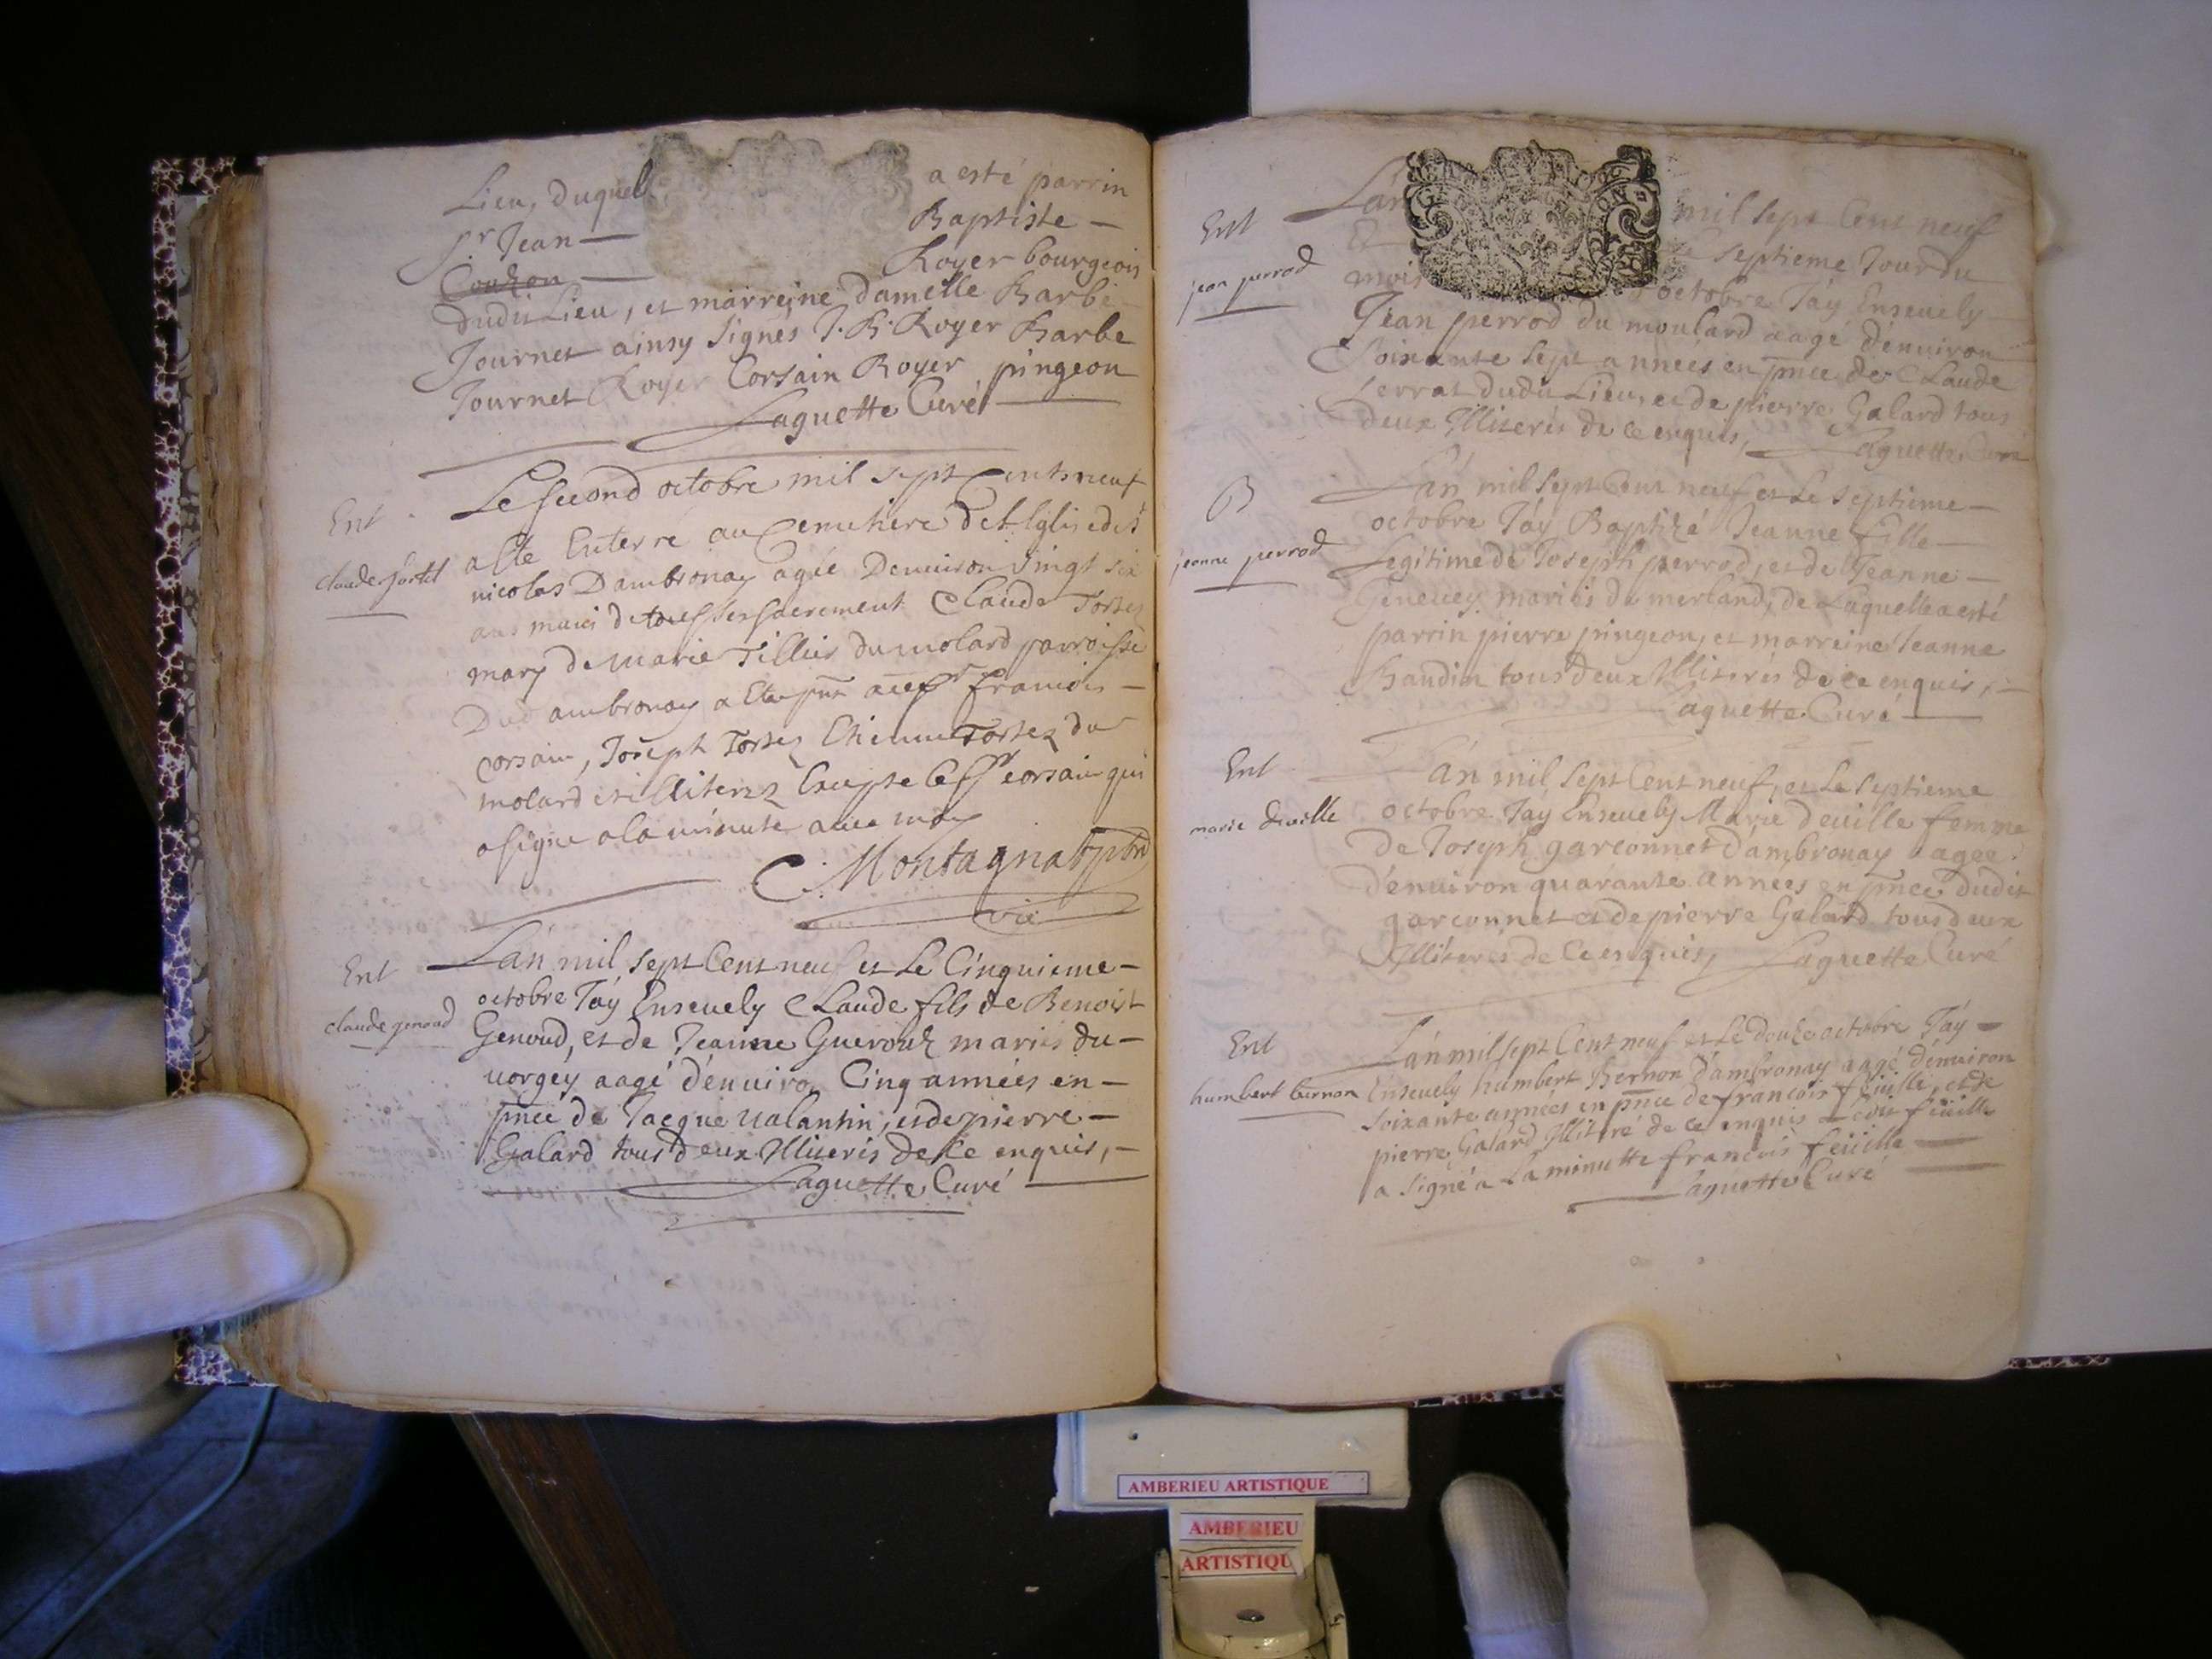 Lieu, duquel a esté parrin
S.r Jean — Baptiste —
Couzon — Royer bourgeois
dudit Lieu, et marreine damelle Barbe
Journet ainsy signés J. B. Royer Barbe
Journet Royer Corsain Royer pingeon
Laguette Curé
Ent
claude fortet
Le second octobre mil sept cents neuf
a Ete Enterré au Cemetiere de l'Eglise de St
nicolas Dambronay agée Denuiron vingt six
ans muni de tous ses sacrement Claude Tortez
mary de Marie Tillier du molard parroisse
Dud ambronay a Ete pnt françois —
corsain, Joseph Tortez Etienne Tortez du
molard et illiterez Excepte le Sr corsain qui
a signe a la minute avec moy
C. Montagnat pbre
vic
Ent
claude genoud
L'an mil sept Cent neuf et Le Cinquieme —
octobre J'ay Enseuely Claude fils de Benoist
Genoud, et de Jeanne Guerouz mariés du —
uorgey aagé d'enuiron Cinq années en —
pnce de Jacque ualantin, et de pierre —
Galard tous deux Illiterés de ce enquis, —
Laguette Curé
Ent
jean perrod
L'an mil sept Cent neuf
Et septieme Jour du
mois octobre J'ay Enseuely
Jean perrod du moulard aagé d'enuiron
Soixante sept années en pnce de Claude
Ferrat dudit Lieu, et de pierre Galard tous
deux Illiterés de ce enquis, Laguette Curé
B
jeanne perrod
L'an mil sept Cent neuf et Le septieme —
octobre J'ay Baptizé Jeanne fille —
Legitime de Joseph perrod, et de Jeanne —
Geneuey mariés du merland, de Laquelle a esté
parrin pierre pingeon, et marreine Jeanne
Baudin tous deux Illiterés de ce enquis, —
Laguette Curé
Ent
marie deuille
L'an mil sept Cent neuf, et Le septieme
octobre J'ay Enseuely Marie deuille femme
de Joseph garconnet d'ambronay aagee
d'enuiron quarante années en pnce dudit
garconnet et de pierre Galard tous deux
Illiterés de Ce enquis, Laguette Curé
Ent
humbert bernon
L'an mil sept Cent neuf et Le douze octobre J'ay —
Enseuely humbert Bernon d'ambronay aagé d'enuiron
soixante années en pnce de francois feüille, et de
pierre Galard Illiteré de ce enquis Ledit feüille
a signé a La minutte francois feüille —
Laguette Curé
AMBERIEU ARTISTIQUE
AMBERIEU
ARTISTIQU